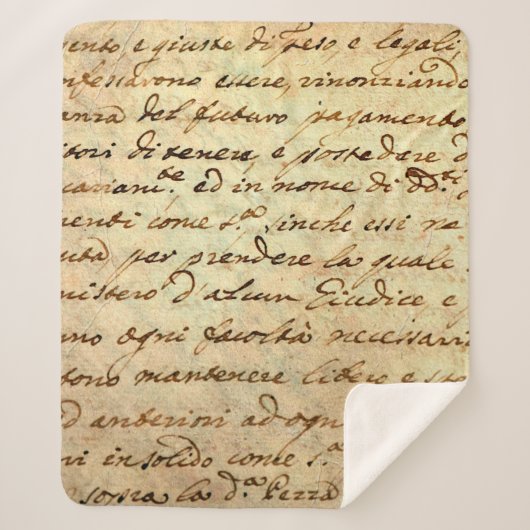 mento e giuste di peso, e legali,
onfessarono essere, rinonziando
anza del futuro pagamento
itori di tenere, e possedere d
cariam.te ed in nome di dd.ti
menti come s.a sinche essi ne
uta per prendere la quale
nistero d'alcun Giudice e
uno ogni facoltà necessaria
tono mantenere libero e
ed anteriori ad ogn
vi in solido come s.a
sopra la d.a Pezza